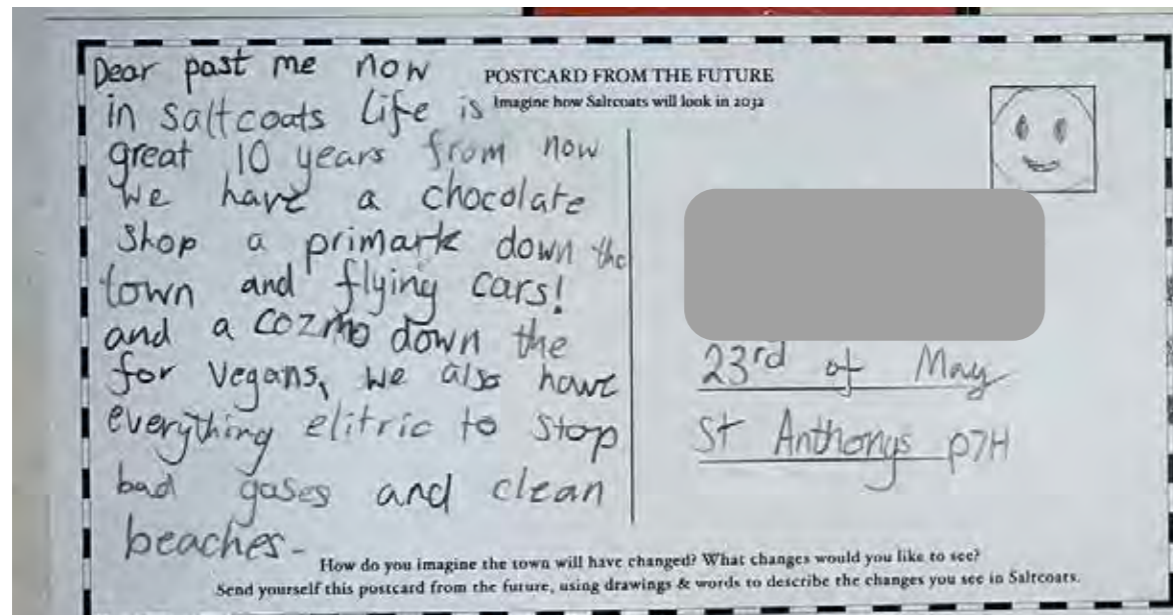 POSTCARD FROM THE FUTURE
Imagine how Saltcoats will look in 2032
Dear past me now
in saltcoats Life is
great 10 years from now
we have a chocolate
shop a primark down the
town and flying cars!
and a cozmo down the
for vegans, we also have
everything elitric to stop
bad gases and clean
beaches-
23rd of May
St Anthonys p7H
How do you imagine the town will have changed? What changes would you like to see?
Send yourself this postcard from the future, using drawings & words to describe the changes you see in Saltcoats.